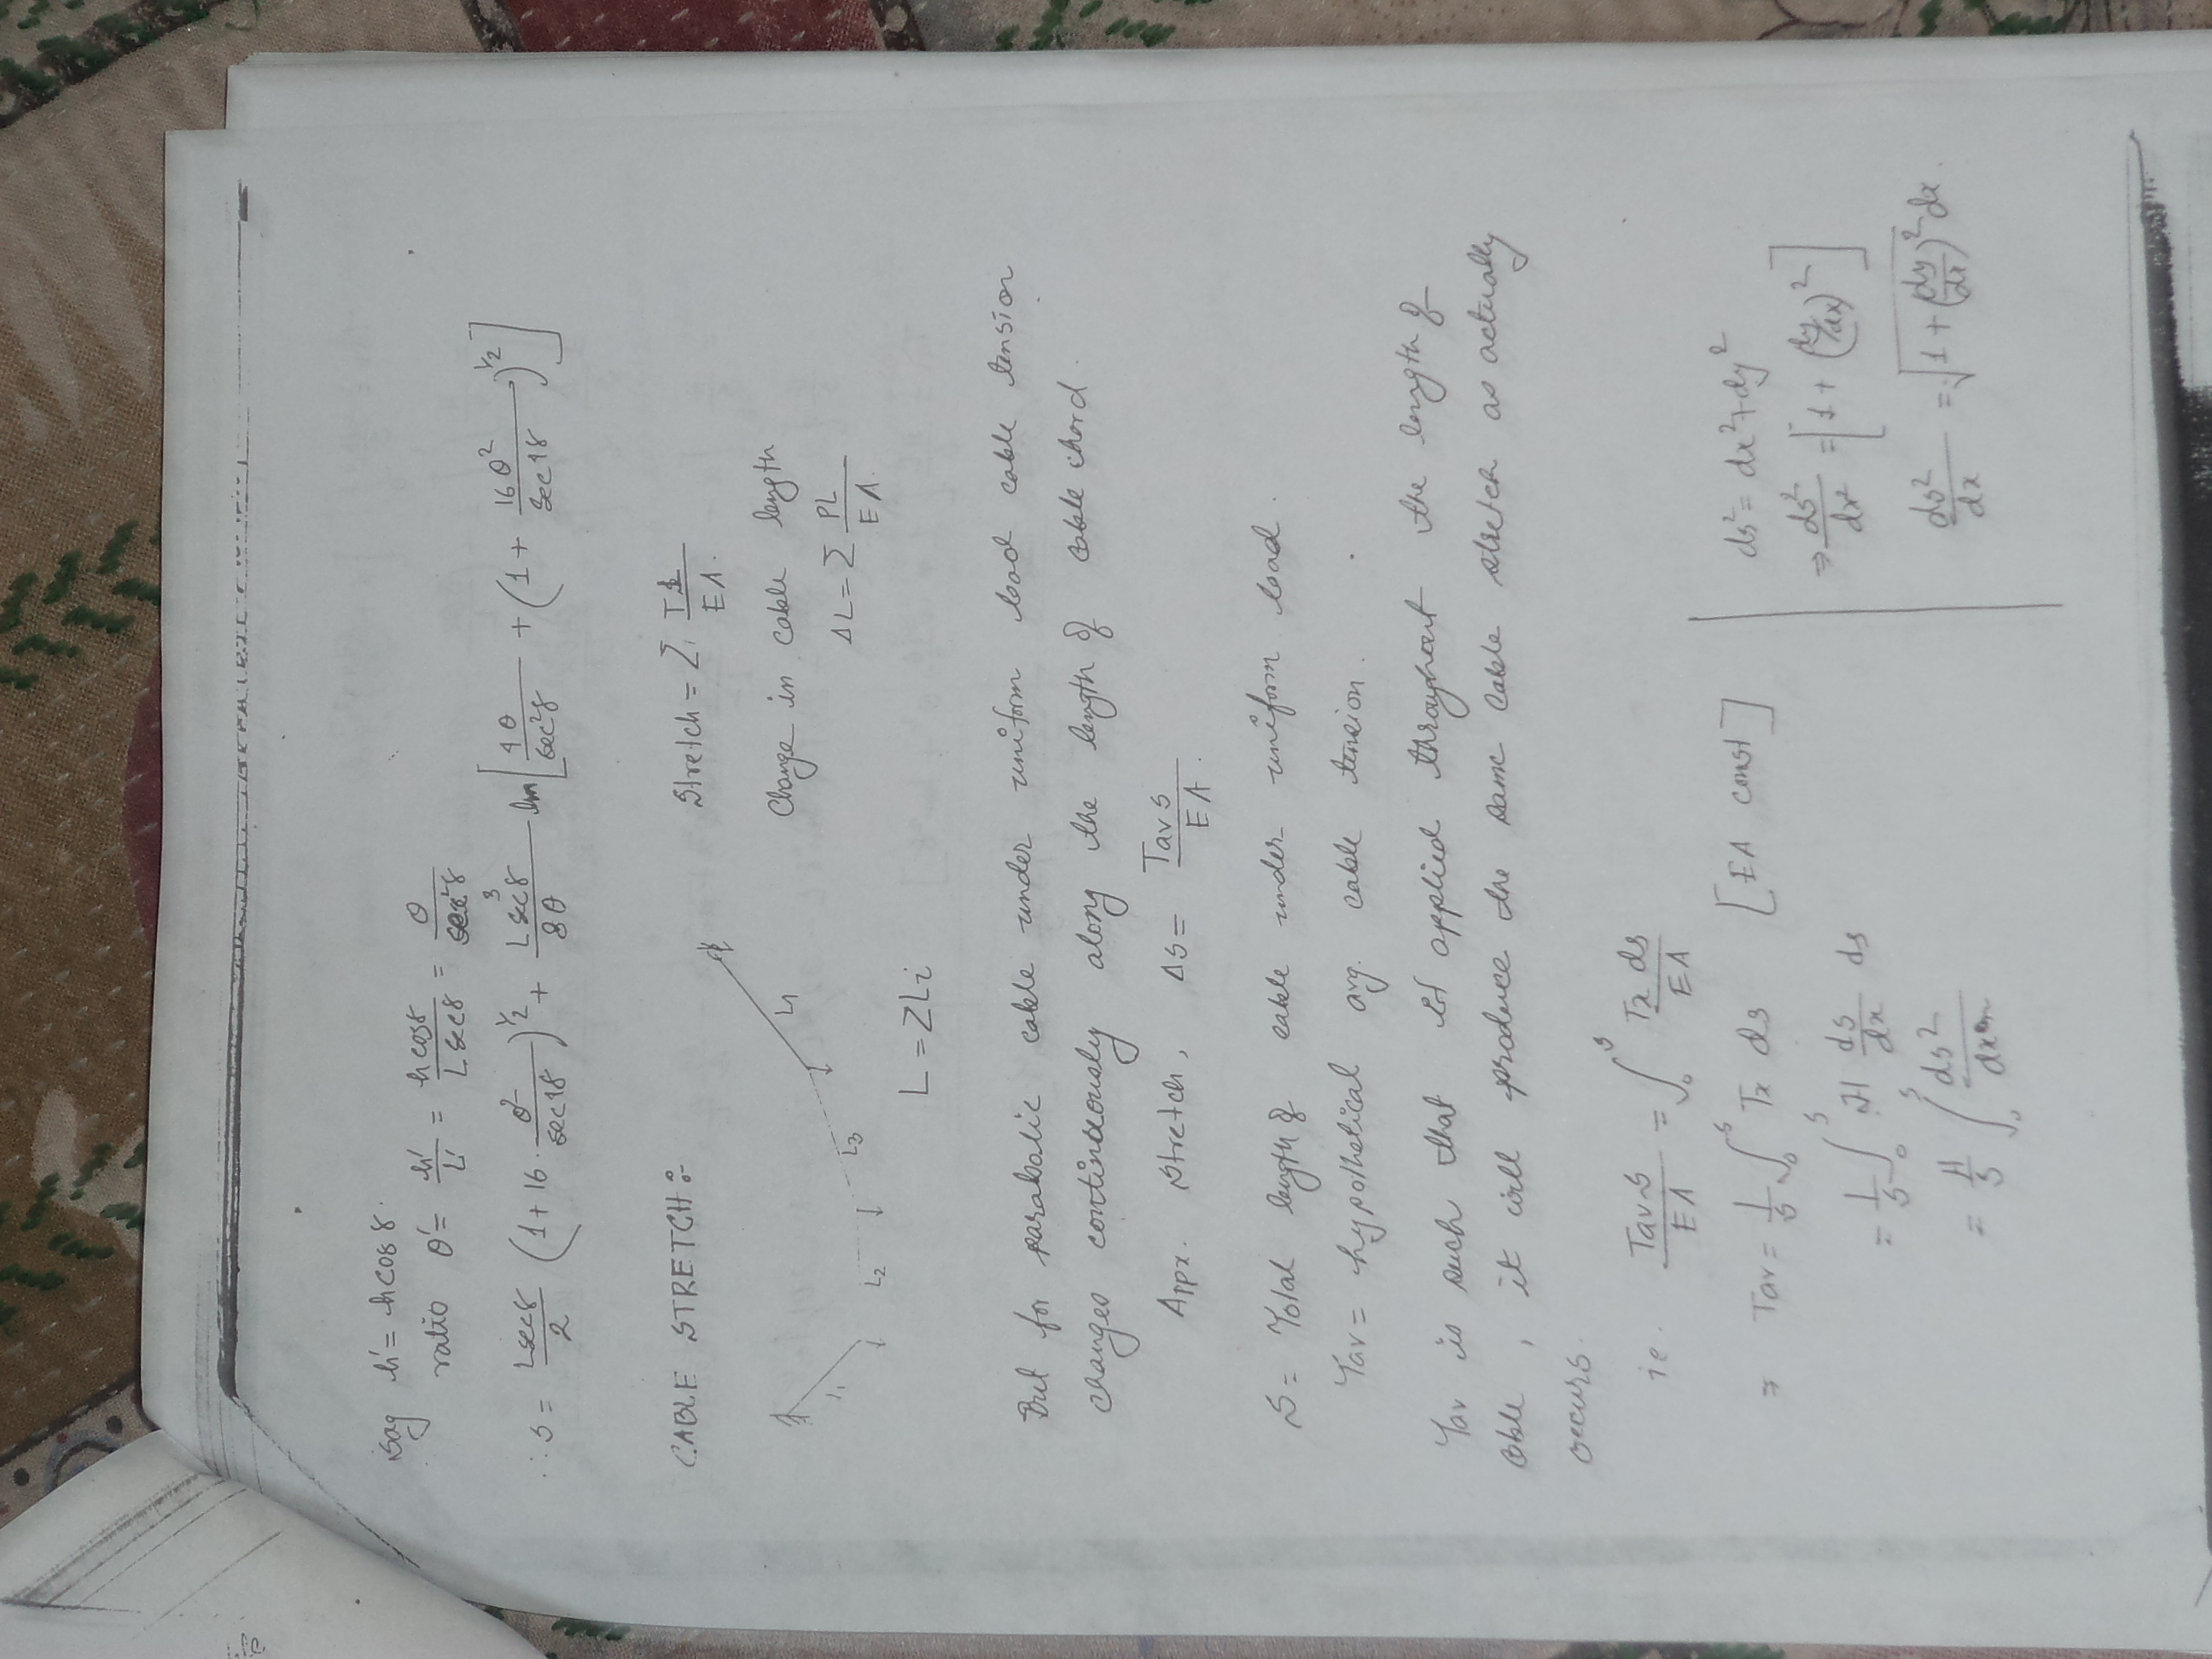 sag h' = h cos γ.
ratio θ' = h'/L' = h cos γ / L sec γ = θ / sec² γ
∴ S = L sec γ / 2 (1 + 16 · θ² / sec⁴ γ)^1/2 + L sec³ γ / 8θ ln [ 4θ / sec² γ + (1 + 16θ² / sec⁴ γ)^1/2 ]
CABLE STRETCH :-
Stretch = Σ TL / EA.
Change in cable length
ΔL = Σ PL / EA.
L₁
L₂
L₃
L₄
L = ΣLi
But for parabolic cable under uniform load cable tension
changes continuously along the length of cable chord.
Appx. stretch, ΔS = Tav S / EA.
S = Total length of cable under uniform load.
Tav = hypothetical avg. cable tension.
Tav is such that if applied throughout the length of
cable, it will produce the same cable stretch as actually
occurs.
ie. Tav·S / EA = ∫₀ˢ Tx ds / EA
⇒ Tav = 1/S ∫₀ˢ Tx ds [EA const]
= 1/S ∫₀ˢ H ds/dx ds
= H/S ∫₀ˢ ds² / dx
ds² = dx² + dy²
⇒ ds²/dx² = [1 + (dy/dx)²]
ds²/dx = √1 + (dy/dx)² dx.